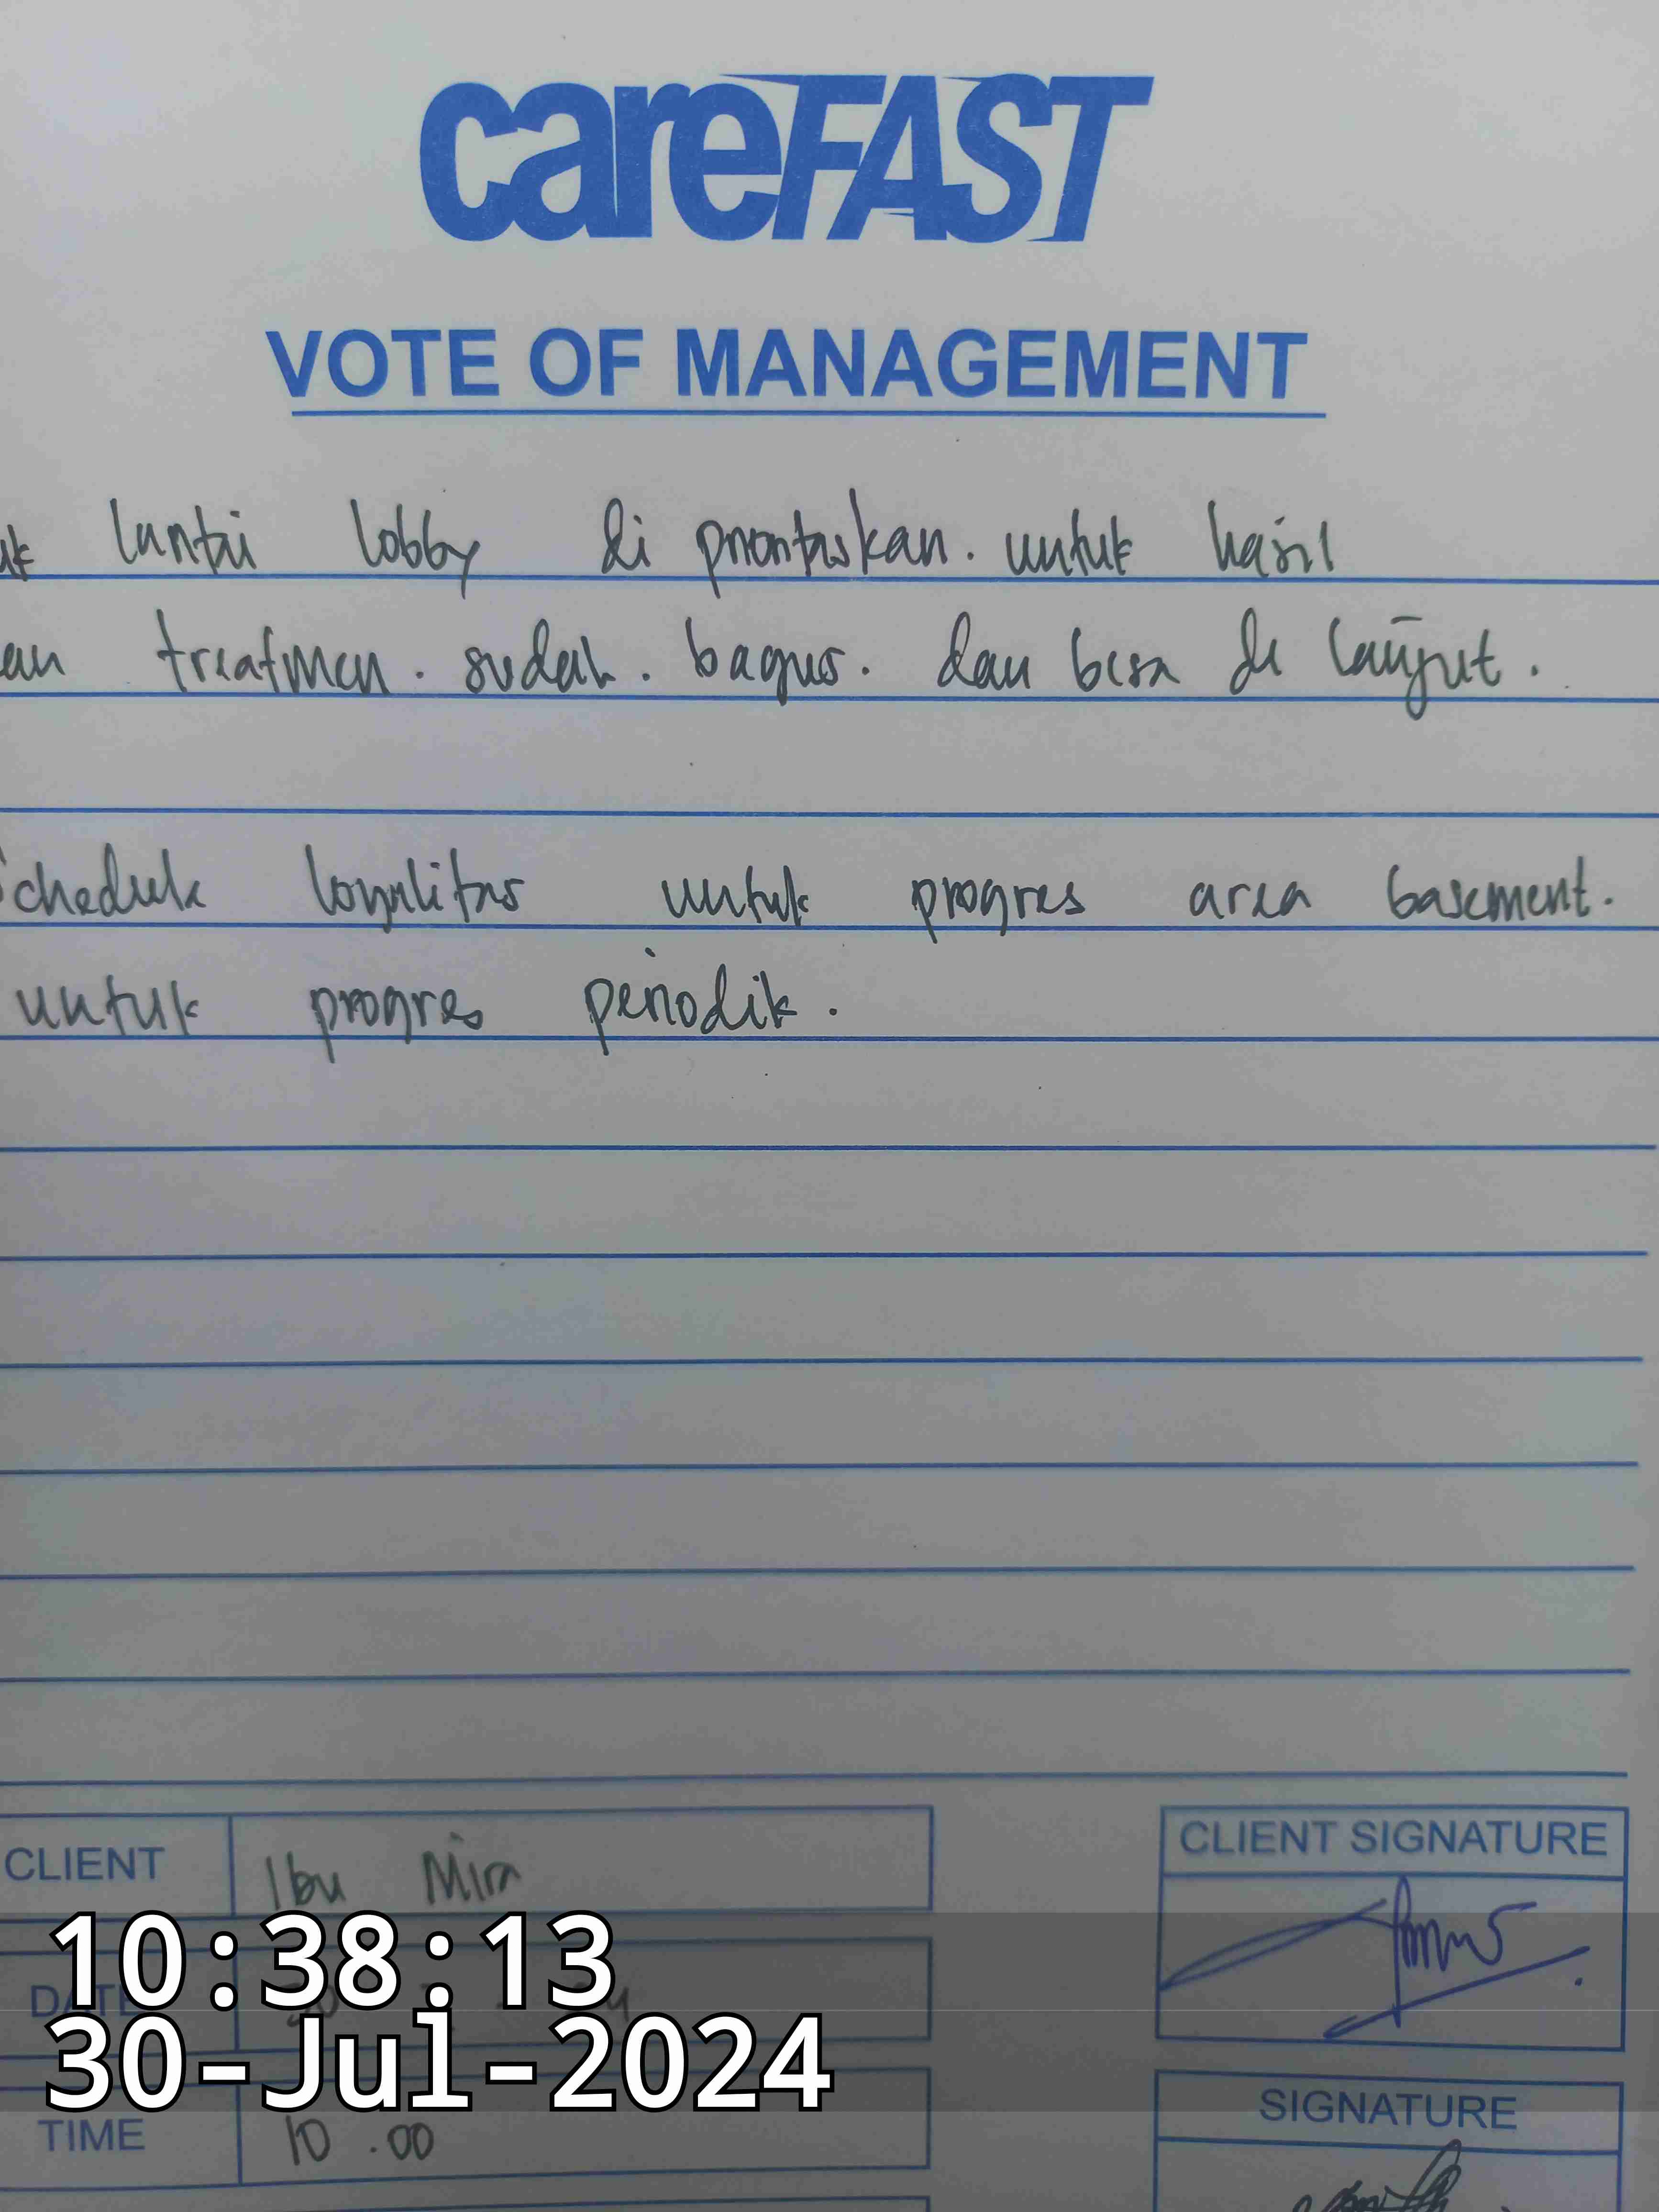 careFAST
VOTE OF MANAGEMENT
uk lantai lobby di prioritaskan. untuk hasil
an treatmen. sudah. bagus. dan bisa di lanjut.
schedule loyalitas untuk progres area basement.
untuk progres periodik.
CLIENT Ibu Mira
CLIENT SIGNATURE
10:38:13
DATE
30-Jul-2024
TIME 10.00
SIGNATURE